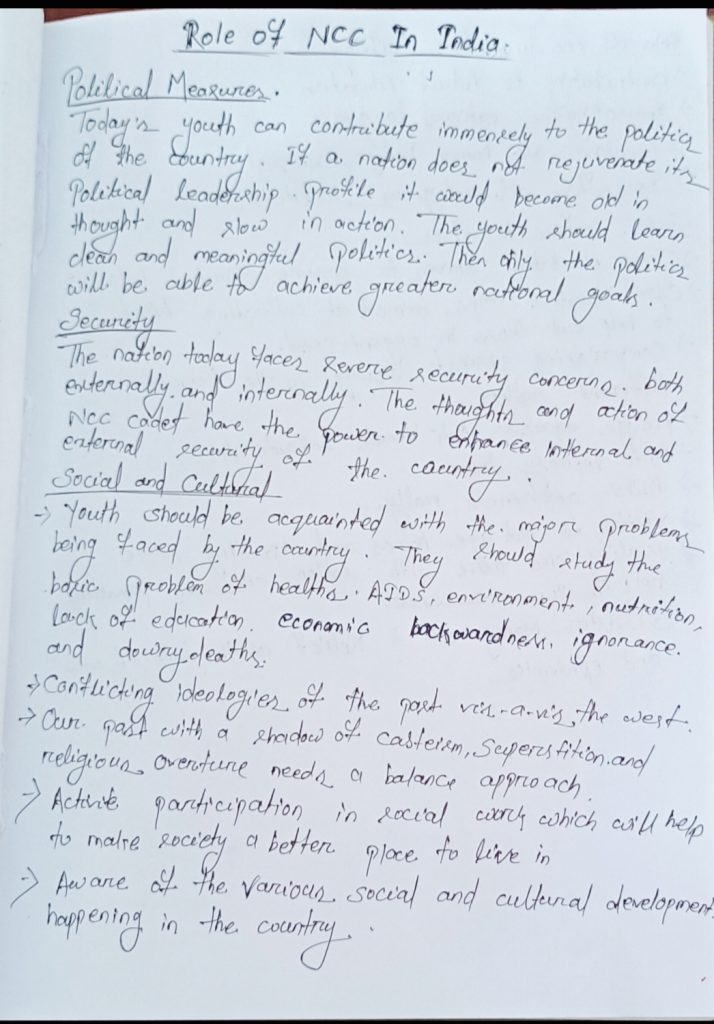 Role of NCC In India.
Political Measures.
Today's youth can contribute immensely to the politics
of the country. If a nation does not rejuvenate its
Political leadership profile it would become old in
thought and slow in action. The youth should learn
clean and meaningful politics. Then only the politics
will be able to achieve greater national goals.
Security
The nation today faces severe security concerns. both
externally. and internally. The thoughts and action of
NCC cadet have the power to enhance internal and
external security of the country.
Social and Cultural
→ Youth should be acquainted with the major problems
being faced by the country. They should study the
basic problem of healths. AIDS, environment, nutrition,
lack of education. economic backwardness, ignorance.
and dowry deaths.
→ Conflicting ideologies of the past vis-a-vis, the west.
→ Our past with a shadow of casteism, Superstition.and
religious overture needs a balance approach.
→ Active participation in social work which will help
to make society a better place to live in
→ Aware of the various social and cultural development
happening in the country.